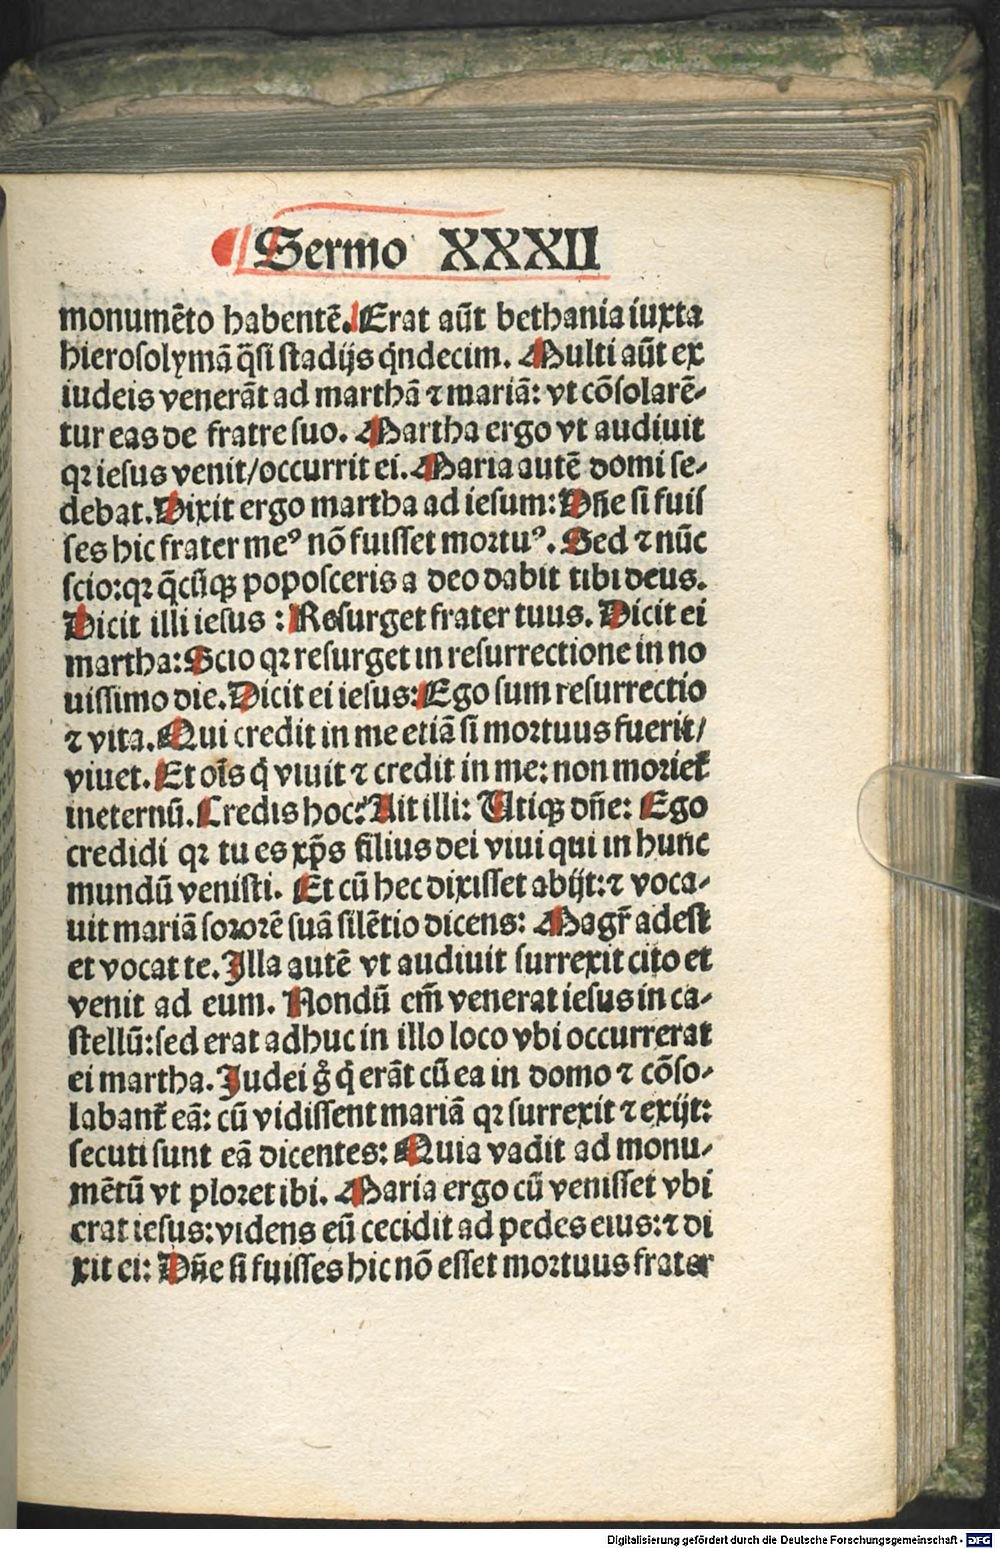 Sermo XXXII
monumēto habentē. Erat aūt bethania iuxta
hierosolymā q̄si stadijs q̇ndecim. Multi aūt ex
iudeis venerāt ad marthā ⁊ mariā: vt cōsolarē-
tur eas de fratre suo. Martha ergo vt audiuit
qꝛ iesus venit/occurrit ei. Maria autē domi se-
debat. Dixit ergo martha ad iesum: Dn̄e si fuis
ses hic frater meꝰ nō fuisset mortuꝰ. Sed ⁊ nūc
scio: qꝛ q̄cūqꝫ poposceris a deo dabit tibi deus.
Dicit illi iesus : Resurget frater tuus. Dicit ei
martha: Scio qꝛ resurget in resurrectione in no
uissimo die. Dicit ei iesus: Ego sum resurrectio
⁊ vita. Qui credit in me etiā si mortuus fuerit/
viuet. Et oīs q̇ viuit ⁊ credit in me: non morieť
ineternū. Credis hoc? Ait illi: Utiqꝫ dn̄e: Ego
credidi qꝛ tu es xp̄s filius dei viui qui in hunc
mundū venisti. Et cū hec dixisset abijt: ⁊ voca-
uit mariā sororē suā silētio dicens: Magr̄ adest
et vocat te. Illa autē vt audiuit surrexit cito et
venit ad eum. Nondū em̄ venerat iesus in ca-
stellū: sed erat adhuc in illo loco vbi occurrerat
ei martha. Judei g̊ q̇ erāt cū ea in domo ⁊ cōso-
labanť eā: cū vidissent mariā qꝛ surrexit ⁊ exijt:
secuti sunt eā dicentes: Quia vadit ad monu-
mētū vt ploret ibi. Maria ergo cū venisset vbi
erat iesus: videns eū cecidit ad pedes eius: ⁊ di
xit ei: Dn̄e si fuisses hic nō esset mortuus frater
Digitalisierung gefördert durch die Deutsche Forschungsgemeinschaft - DFG